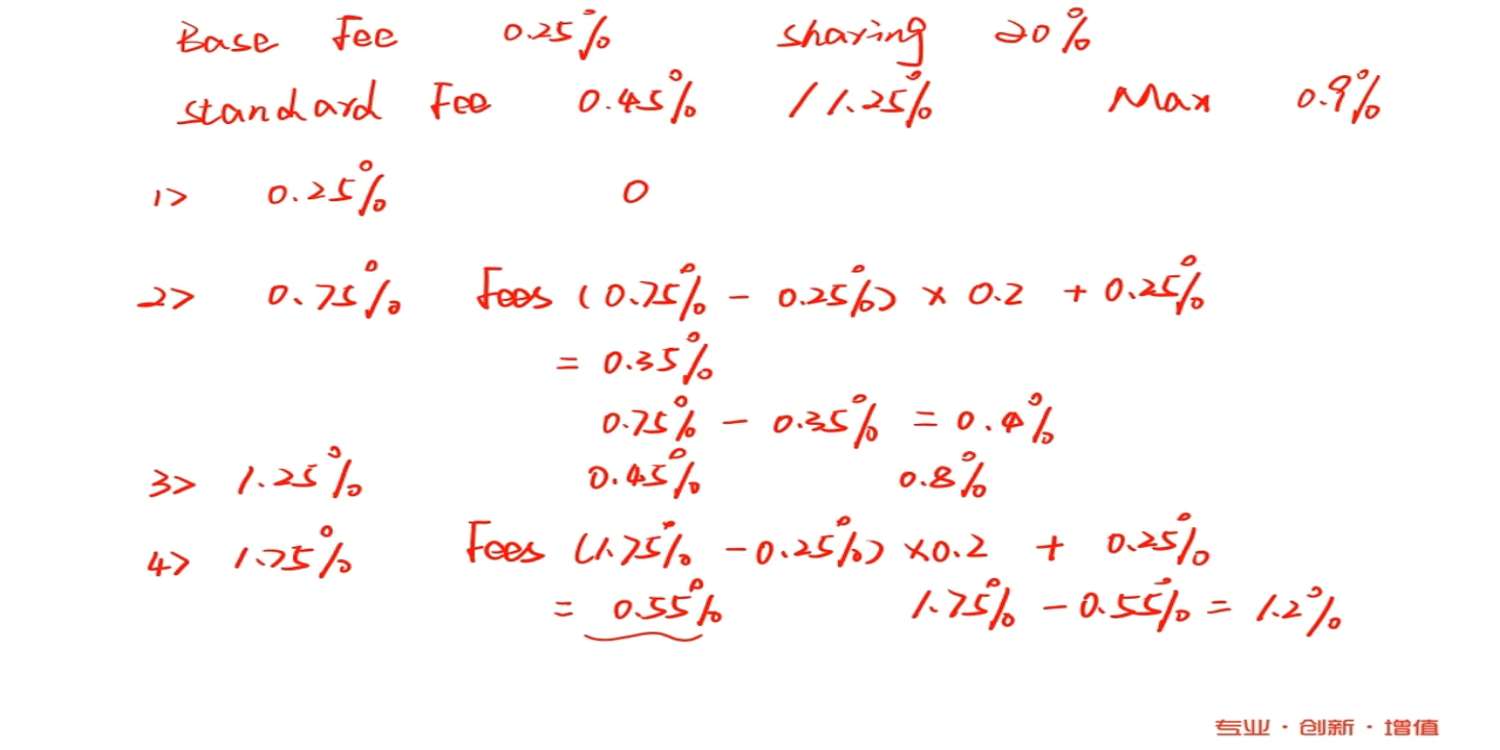 Base Fee 0.25% sharing 20%
standard Fee 0.45% / 1.25% Max 0.9%
1> 0.25% 0
2> 0.75% Fees (0.75% - 0.25%) × 0.2 + 0.25%
= 0.35%
0.75% - 0.35% = 0.4%
3> 1.25% 0.45% 0.8%
4> 1.75% Fees (1.75% - 0.25%) ×0.2 + 0.25%
= 0.55% 1.75% - 0.55% = 1.2%
专业·创新·增值